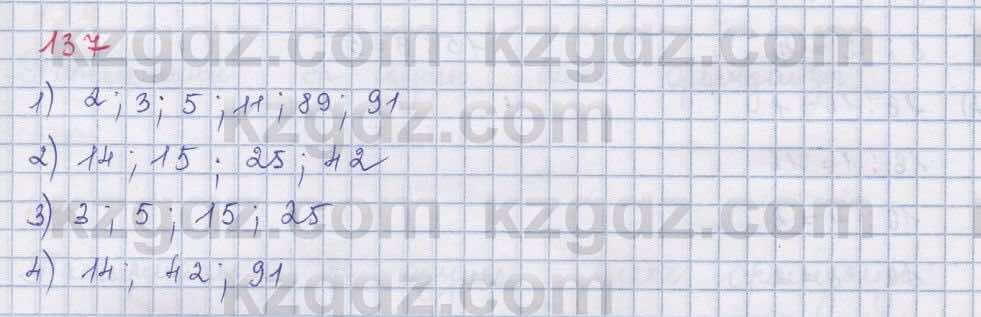 kzgdz.com kzgdz.com
137
1) 2; 3; 5; 11; 89; 91
kzgdz.com
2) 14; 15; 25; 42
3) 3; 5; 15; 25
kzgdz.com kzgdz.com
4) 14; 42; 91
kzgdz.com